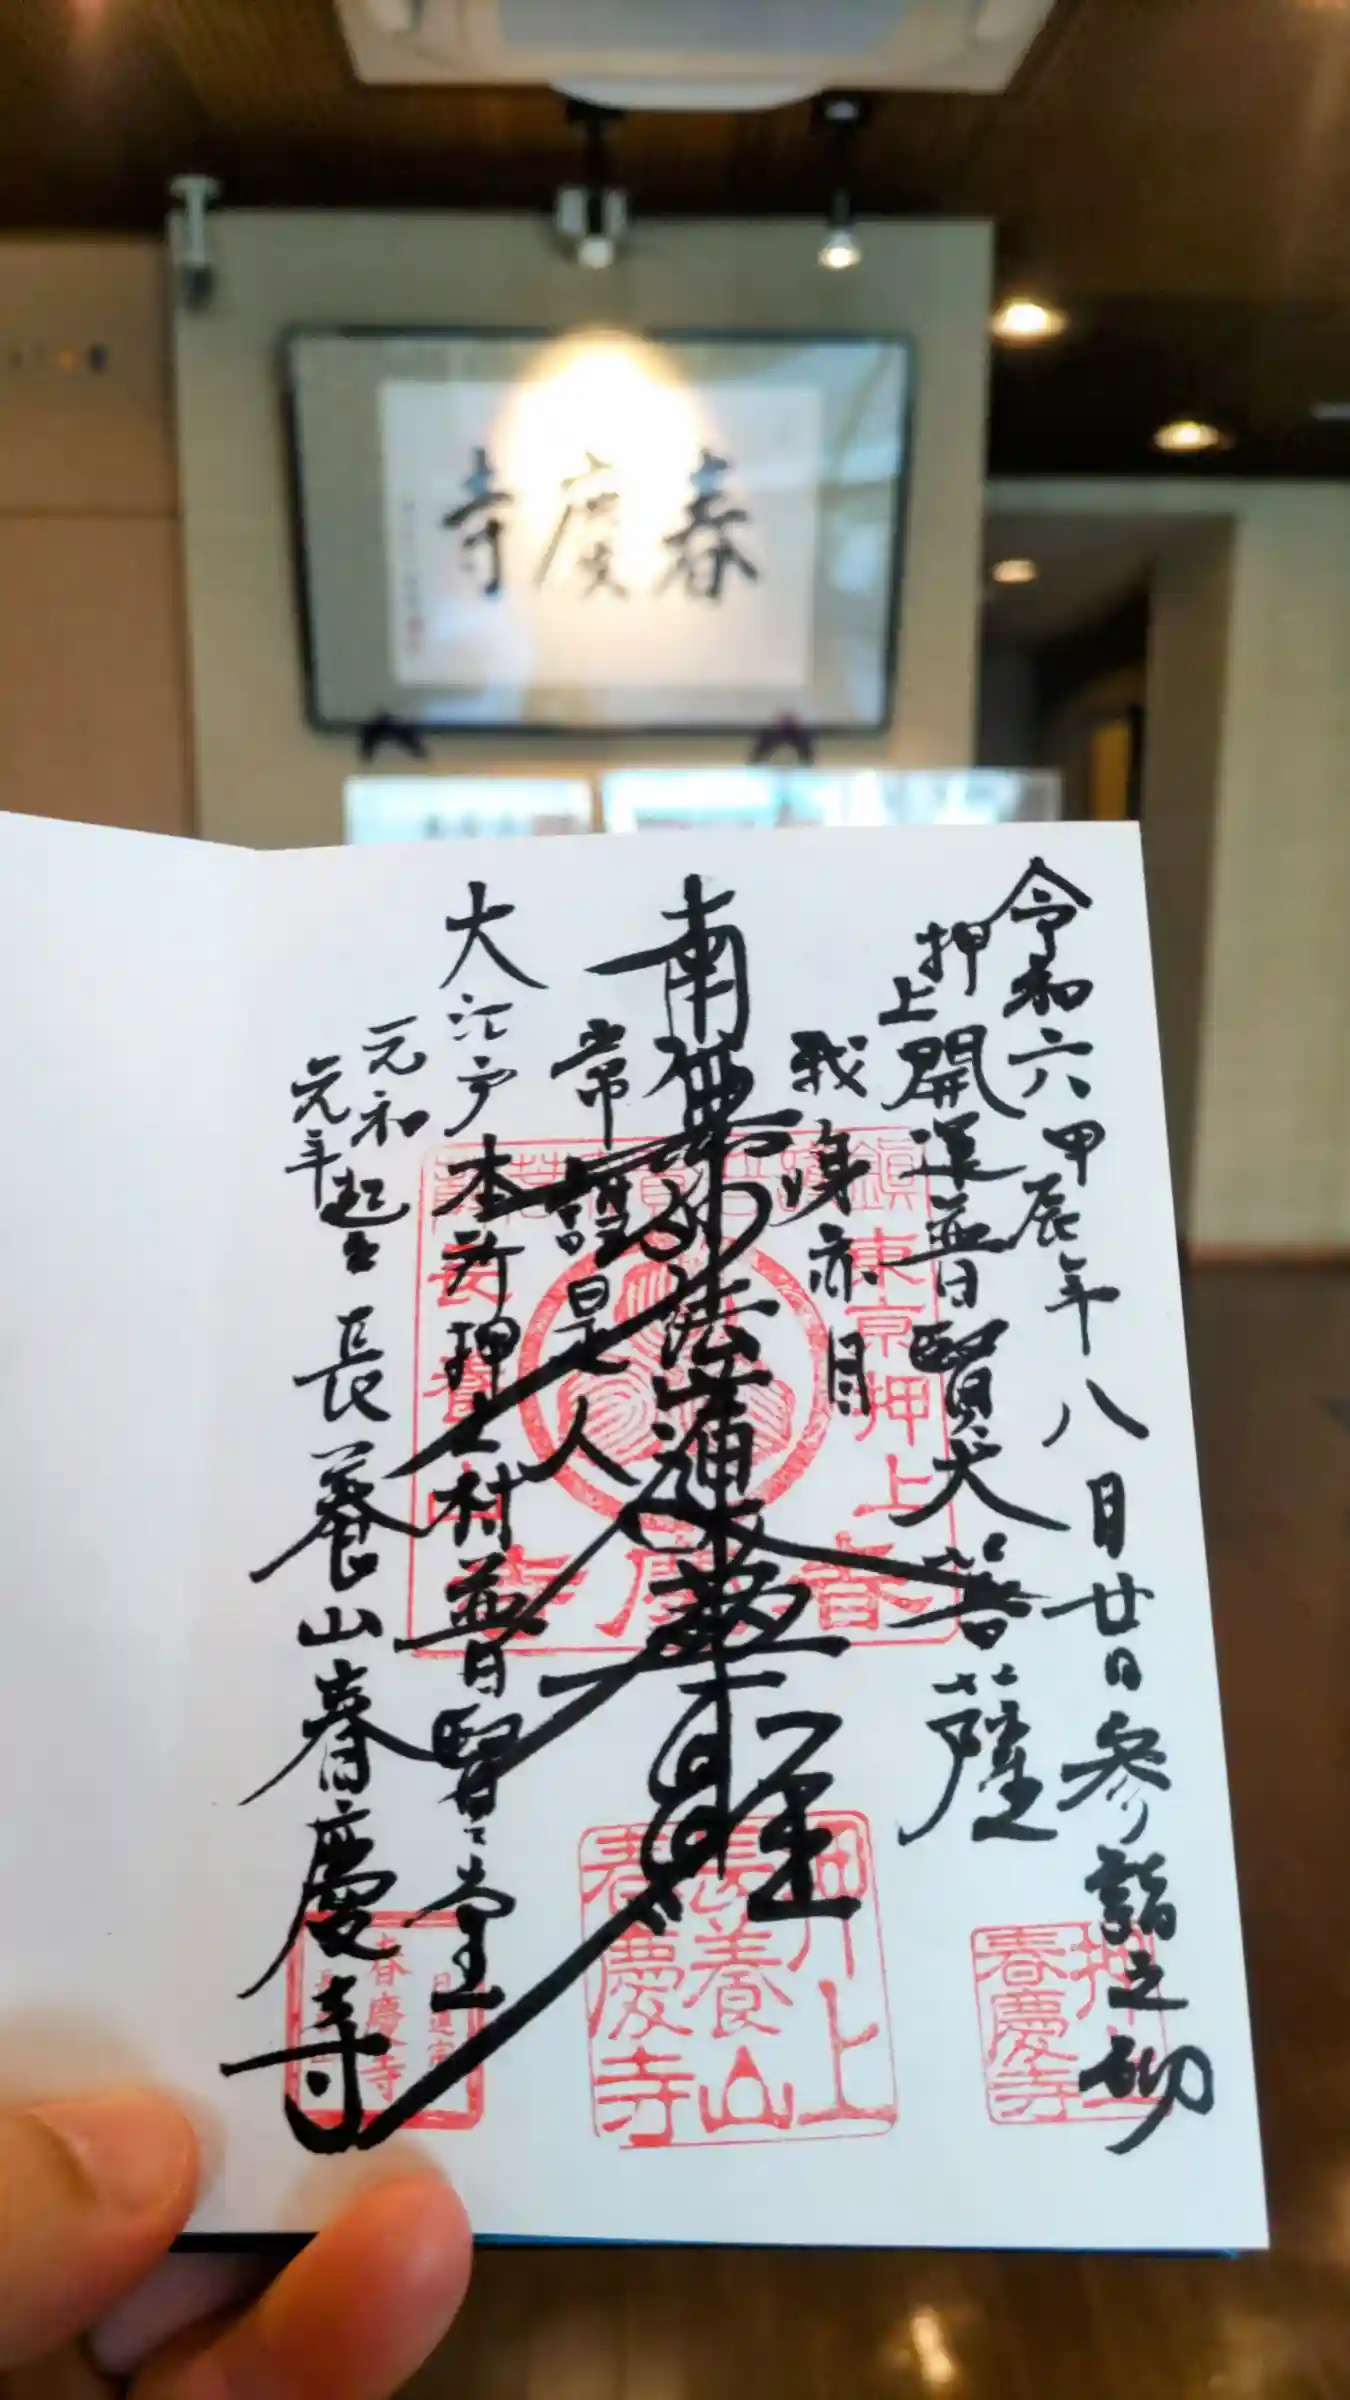 春慶寺
令和六甲辰年八月廿日参り詣之砌
押上開運普賢大菩薩
我身亦自
南無妙法蓮華経
常護是人
大江戸本所押上村普賢堂
元和元年起立長養山春慶寺
東京押上
春慶寺
押上
長養山
春慶寺
押上
春慶寺
日蓮宗
春慶寺